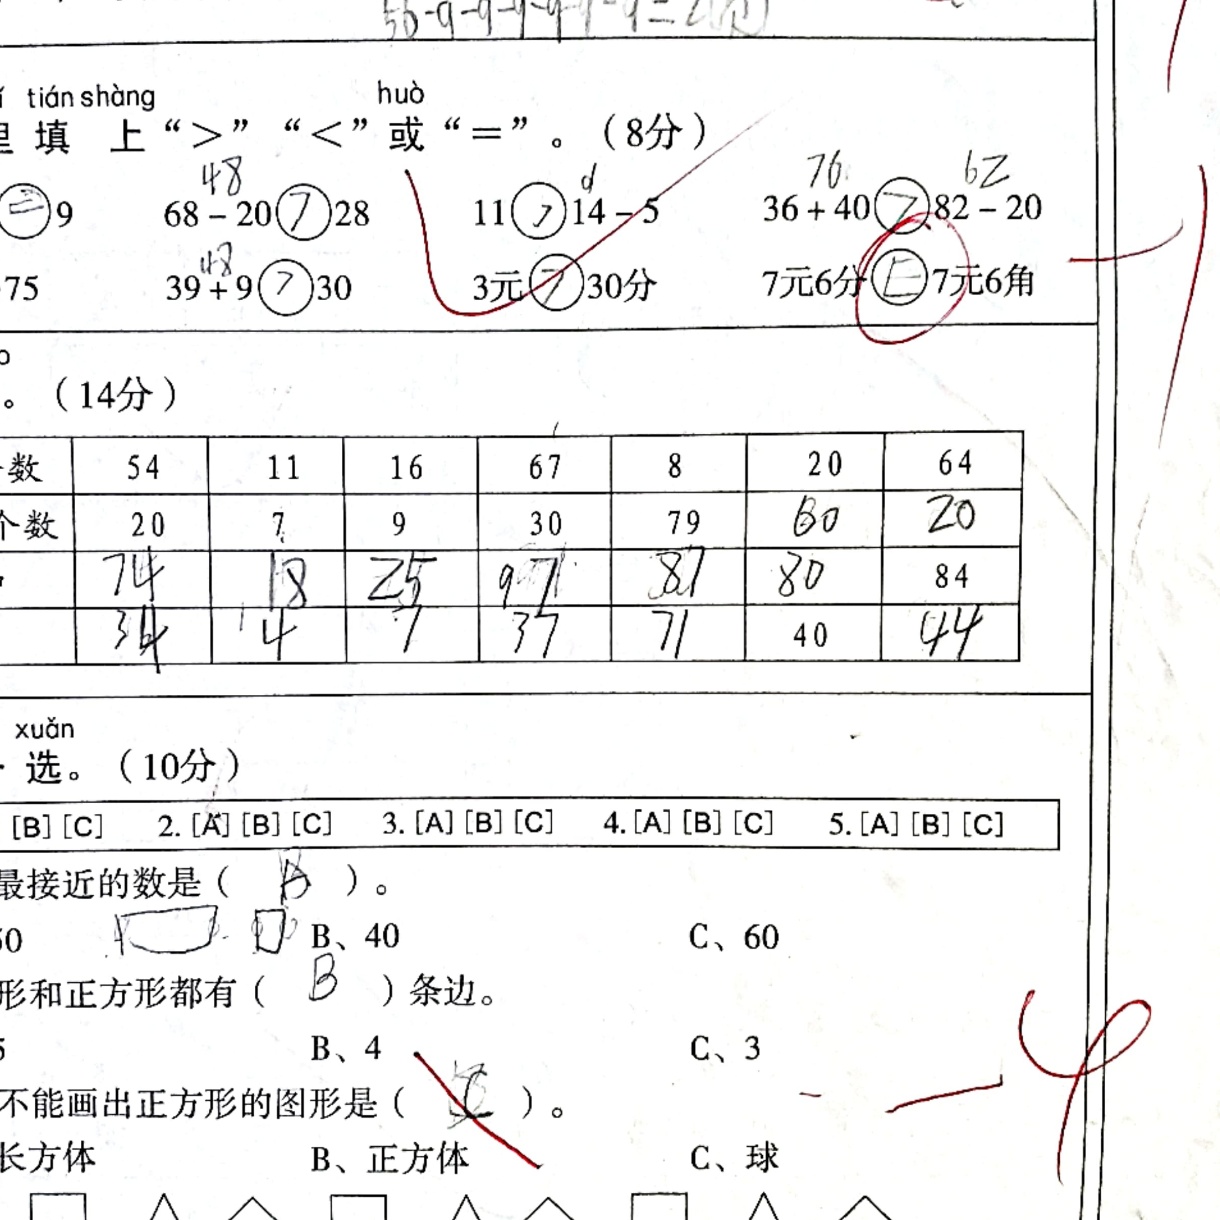 56-9-9-9-9-9-9=2(个)
tián shàng huò
里 填 上 “>” “<” 或 “=” 。（8分）
48 d 76 62
= 9 68-20 > 28 11 > 14-5 36+40 > 82-20
48
75 39+9 > 30 3元 > 30分 7元6分 = 7元6角
。（14分）
数 54 11 16 67 8 20 64
个数 20 7 9 30 79 60 20
74 18 25 97 87 80 84
34 4 7 37 71 40 44
xuǎn
选。（10分）
[B] [C] 2. [A] [B] [C] 3. [A] [B] [C] 4. [A] [B] [C] 5. [A] [B] [C]
最接近的数是（ B ）。
50 B、40 C、60
形和正方形都有（ B ）条边。
5 B、4 C、3
不能画出正方形的图形是（ C ）。
长方体 B、正方体 C、球
-4